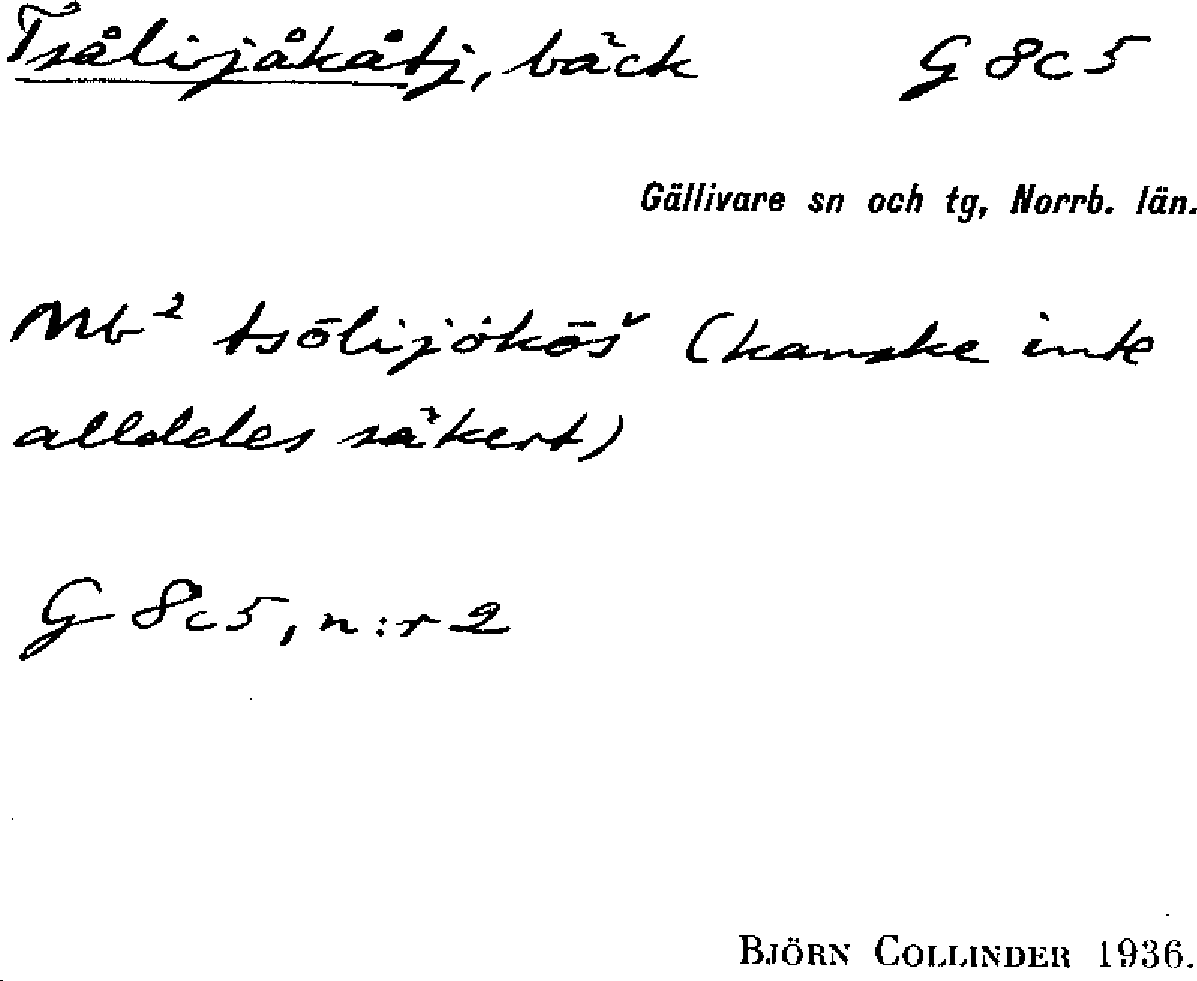 Tsålijåkåtj, bäck G 8c5
Gällivare sn och tg, Norrb. län.
Mb² tsōlijȯkōš́ (kanske inte
alldeles säkert)
G 8c5, n:r 2
BJÖRN COLLINDER 1936.